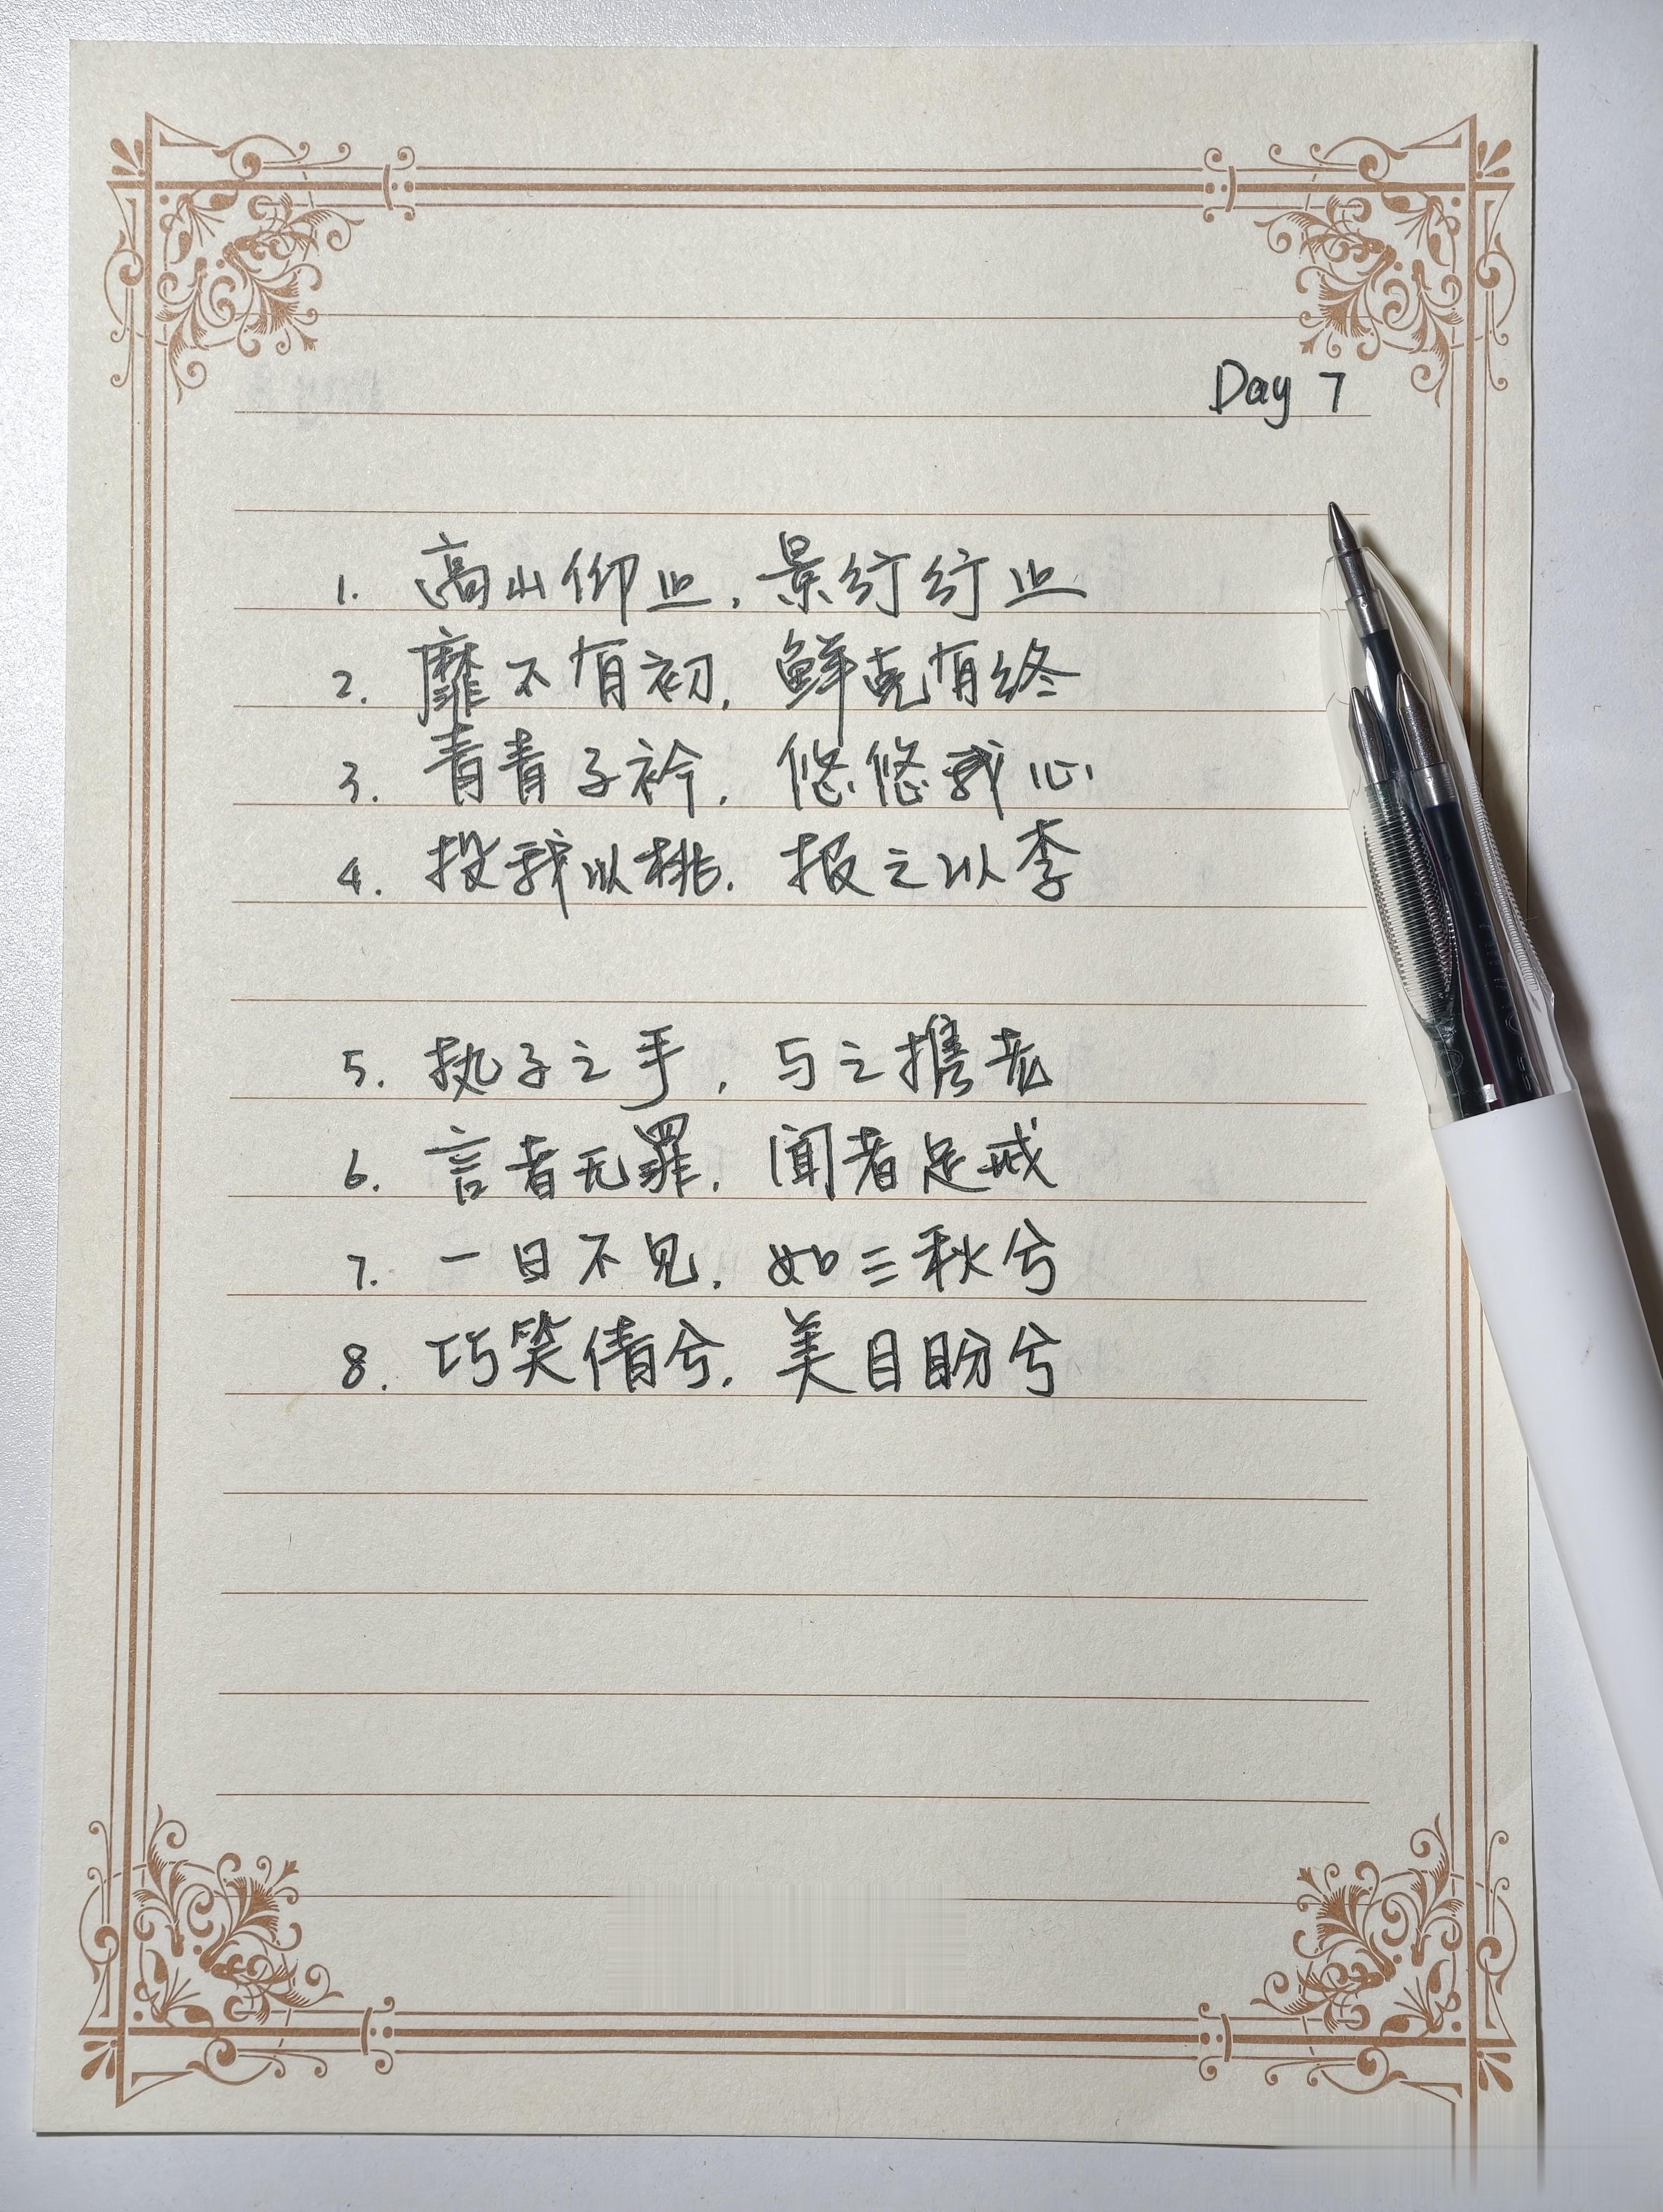 Day 7
1. 高山仰止,景行行止
2. 靡不有初,鲜克有终
3. 青青子衿,悠悠我心
4. 投我以桃,报之以李
5. 执子之手,与之携老
6. 言者无罪,闻者足戒
7. 一日不见,如三秋兮
8. 巧笑倩兮,美目盼兮